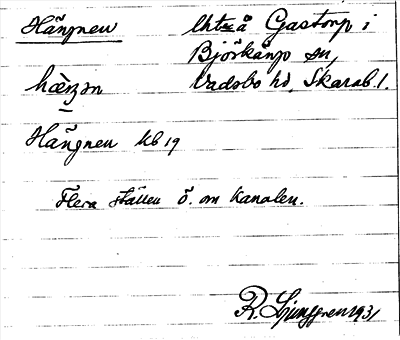 Hängnen lht å Gastorp i
Björkängs sn,
hæŋən Vadsbo hd, Skarab. l.
Hängnen kb 19
Flera ställen ö. om kanalen.
R. Ljunggren 1931